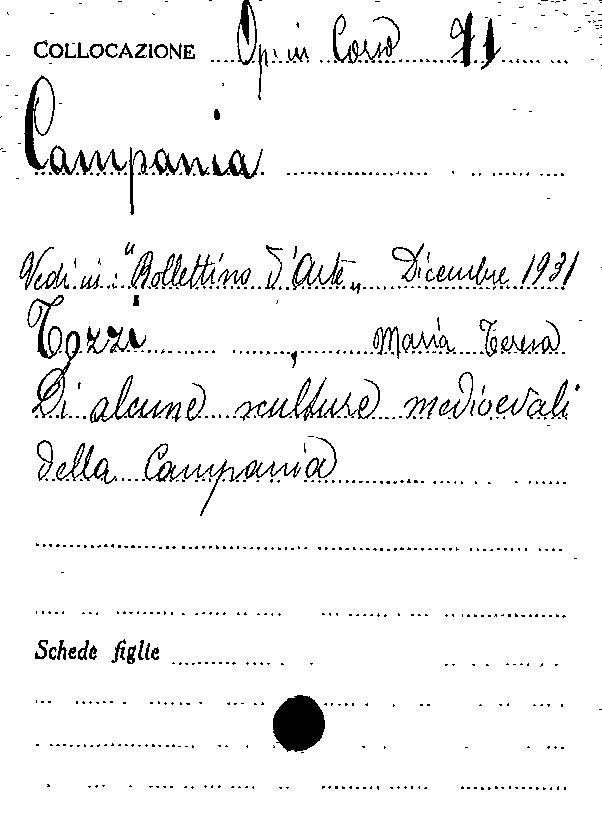 COLLOCAZIONE Op. in Corso 71
Campania
Vedi in: "Bollettino d'Arte„ Dicembre 1931
Tozzi, Maria Teresa
Di alcune sculture medioevali
della Campania
Schede figlie